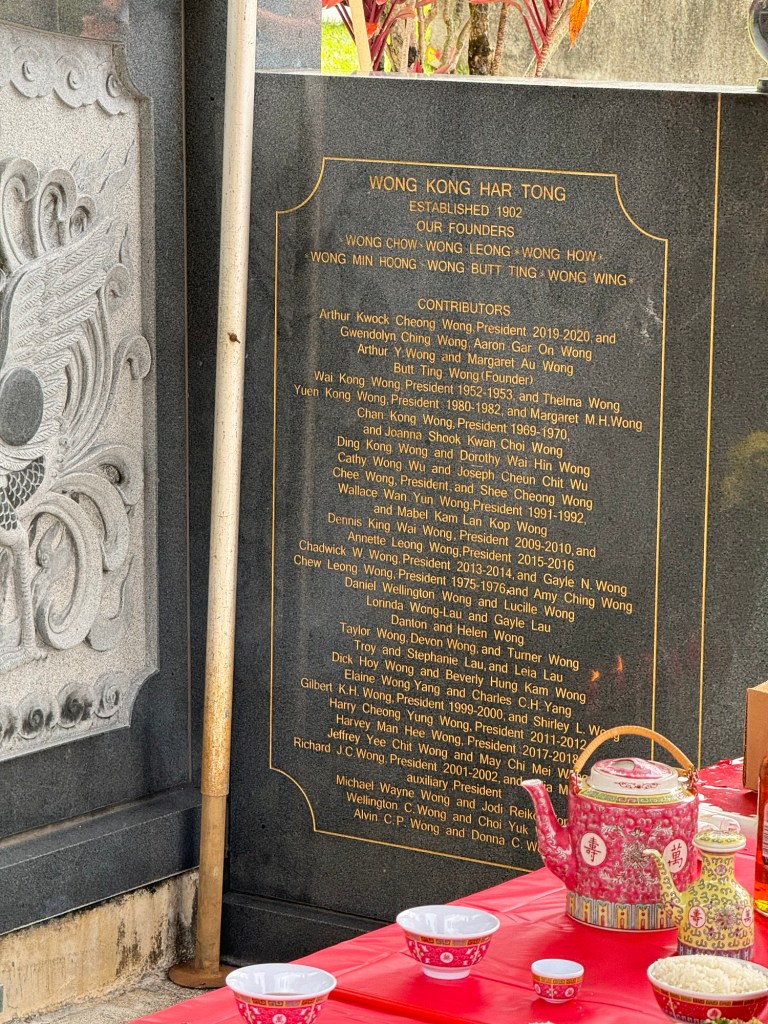 WONG KONG HAR TONG
ESTABLISHED 1902
OUR FOUNDERS
WONG CHOW WONG LEONG WONG HOW
WONG MIN HOONG WONG BUTT TING WONG WING
CONTRIBUTORS
Arthur Kwock Cheong Wong, President 2019-2020, and
Gwendolyn Ching Wong, Aaron Gar On Wong
Arthur Y. Wong and Margaret Au Wong
Butt Ting Wong (Founder)
Wai Kong Wong, President 1952-1953, and Thelma Wong
Yuen Kong Wong, President 1980-1982, and Margaret M.H. Wong
Chan Kong Wong, President 1969-1970,
and Joanna Shook Kwan Choi Wong
Ding Kong Wong and Dorothy Wai Hin Wong
Cathy Wong Wu and Joseph Cheun Chit Wu
Chee Wong, President, and Shee Cheong Wong
Wallace Wan Yun Wong, President 1991-1992,
and Mabel Kam Lan Kop Wong
Dennis King Wai Wong, President 2009-2010, and
Annette Leong Wong, President 2015-2016
Chadwick W. Wong, President 2013-2014, and Gayle N. Wong
Chew Leong Wong, President 1975-1976, and Amy Ching Wong
Daniel Wellington Wong and Lucille Wong
Lorinda Wong-Lau and Gayle Lau
Danton and Helen Wong
Taylor Wong, Devon Wong, and Turner Wong
Troy and Stephanie Lau, and Leia Lau
Dick Hoy Wong and Beverly Hung Kam Wong
Elaine Wong Yang and Charles C.H. Yang
Gilbert K.H. Wong, President 1999-2000, and Shirley L. Wong
Harry Cheong Yung Wong, President 2011-2012
Harvey Man Hee Wong, President 2017-2018
Jeffrey Yee Chit Wong and May Chi Mei
Richard J.C. Wong, President 2001-2002, and
auxiliary President
Michael Wayne Wong and Jodi
Wellington C. Wong and Choi Yuk
Alvin C.P. Wong and Donna C.
壽 萬